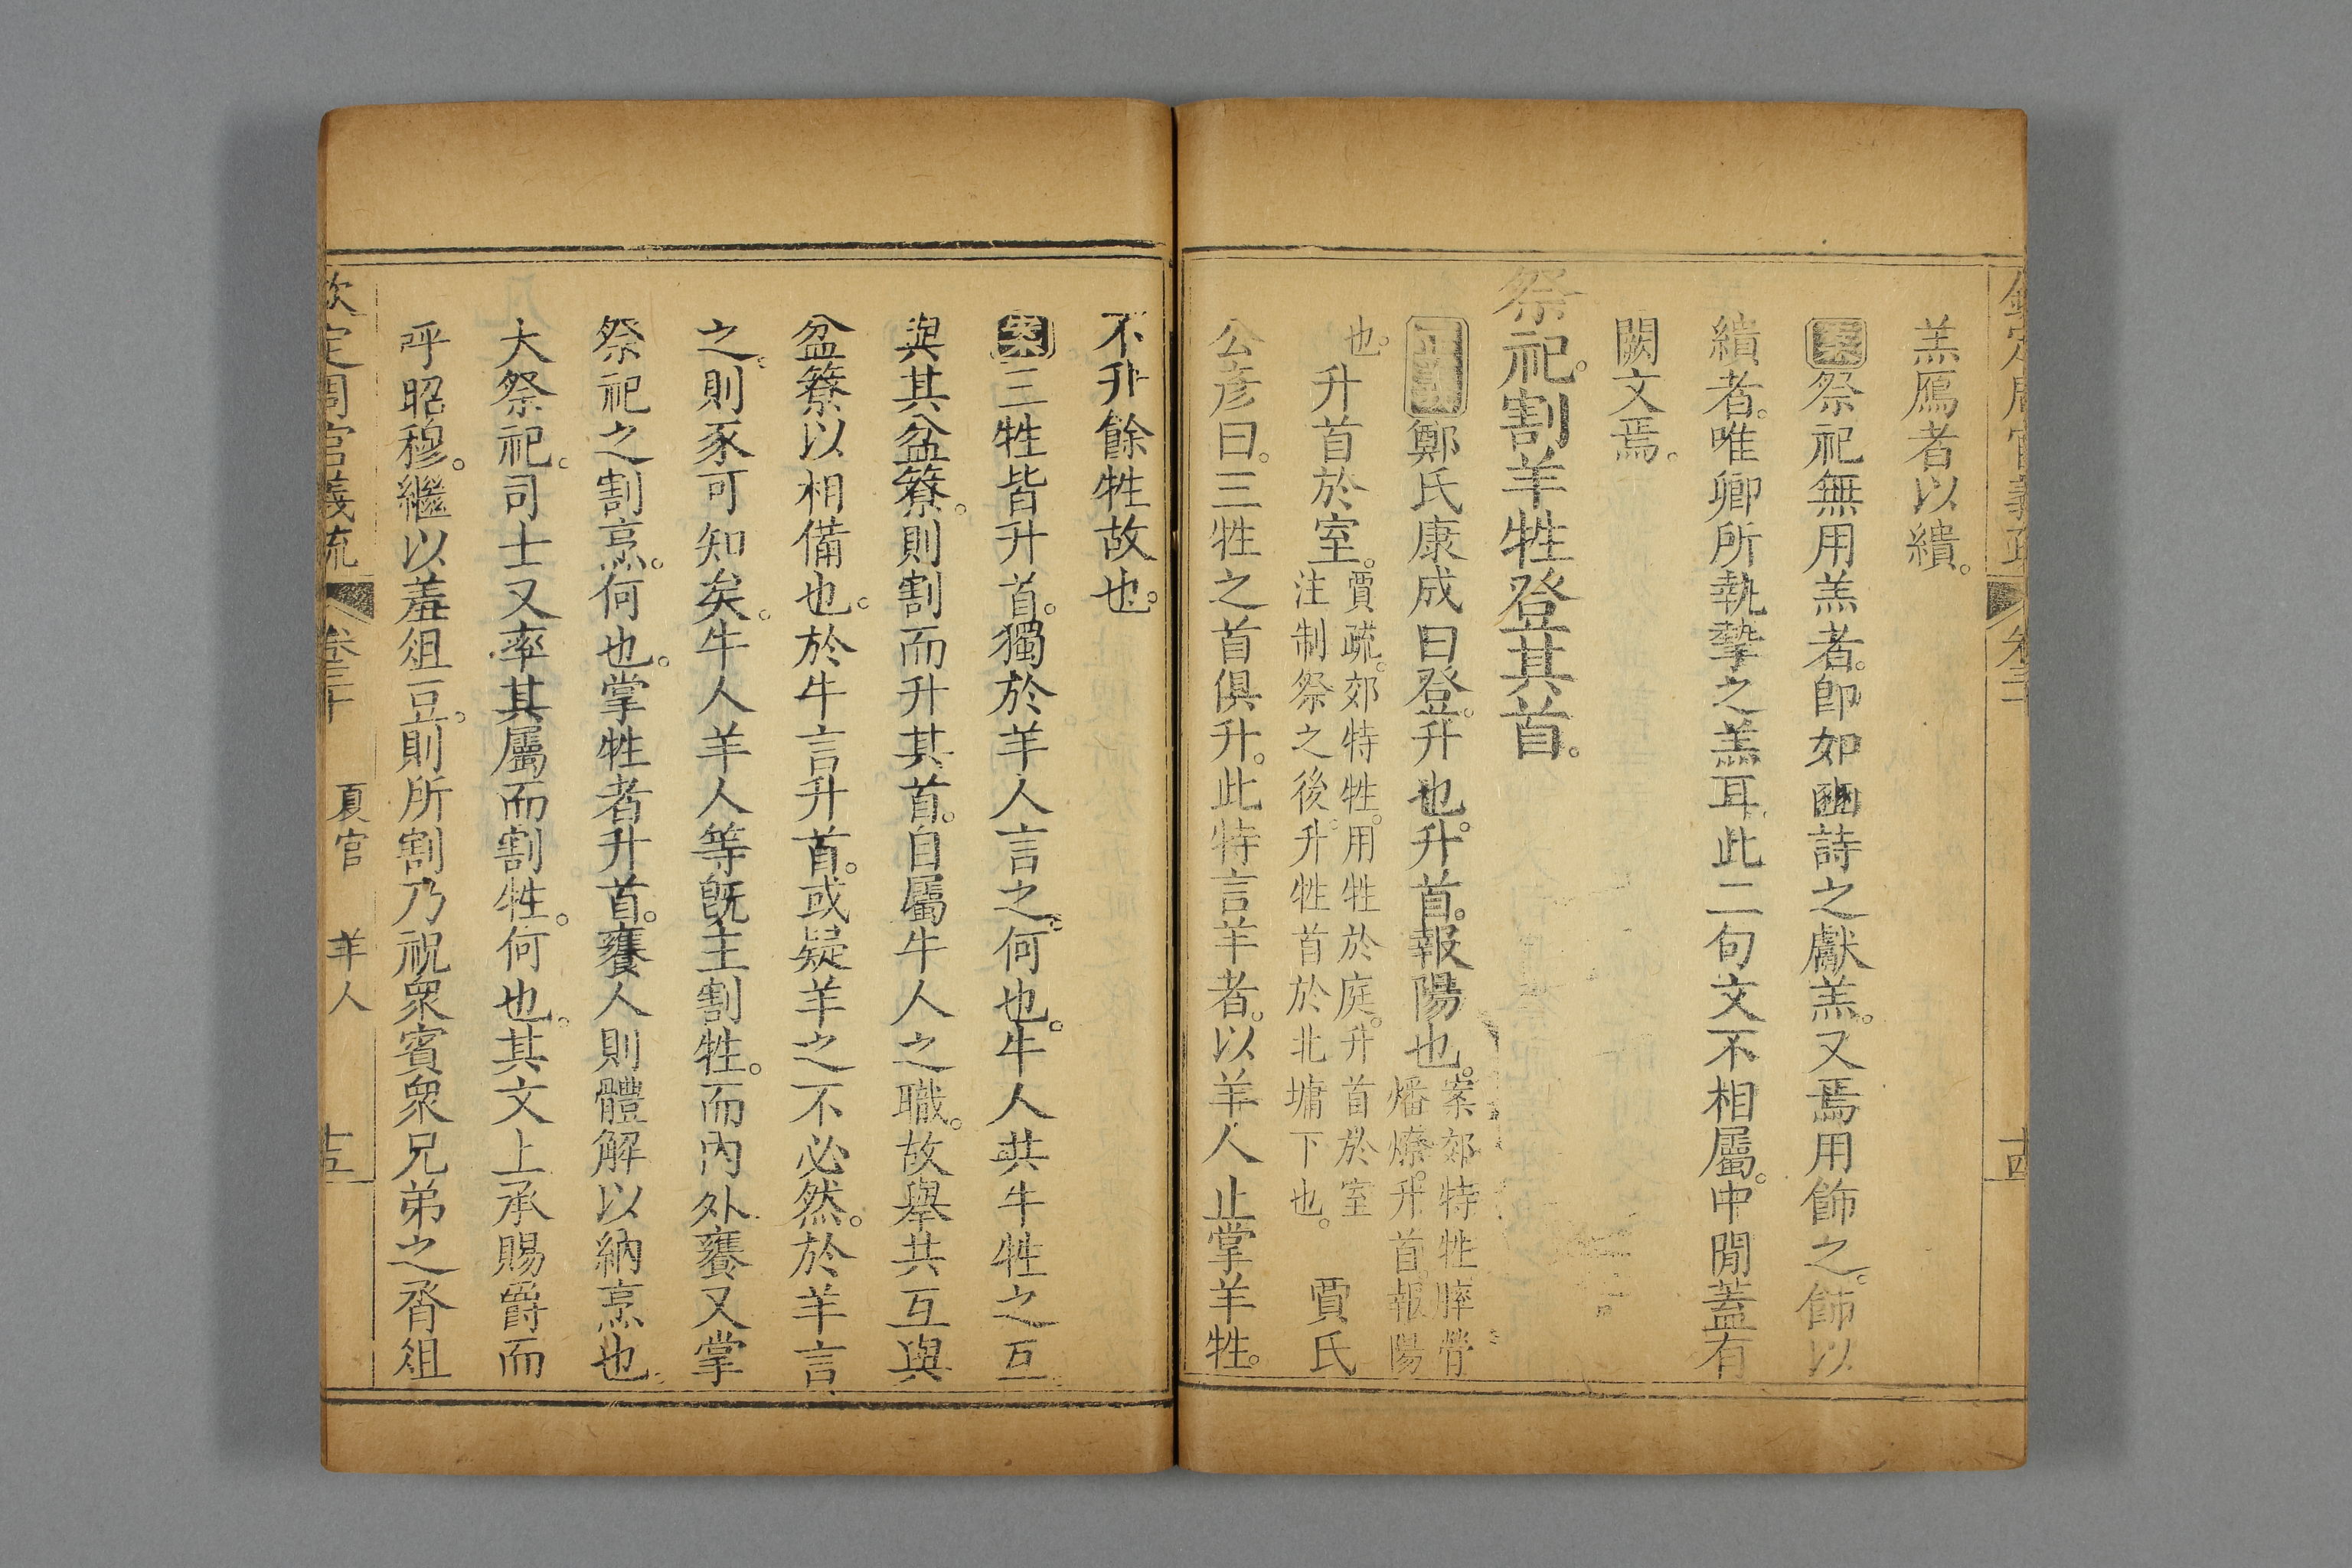 欽定周官義疏 卷三十 十四
羔鴈者以繢。
案祭祀無用羔者。卽如豳詩之獻羔。又焉用飾之。飾以
繢者。唯卿所執摯之羔耳。此二句文不相屬。中閒蓋有
闕文焉。
祭祀。割羊牲登其首。
正義鄭氏康成曰登。升也。升首。報陽也。案郊特牲膟膋
燔燎。升首。報陽
也。升首於室。賈疏。郊特牲。用牲於庭。升首於室
注制祭之後。升牲首於北墉下也。賈氏
公彥曰。三牲之首俱升。此特言羊者。以羊人止掌羊牲。
不升餘牲故也。
案三牲皆升首。獨於羊人言之。何也。牛人共牛牲之互
與其盆簝。則割而升其首。自屬牛人之職。故舉共互與
盆簝以相備也。於牛言升首。或疑羊之不必然。於羊言
之。則豕可知矣。牛人羊人等旣主割牲。而內外饔又掌
祭祀之割亨。何也。掌牲者升首。饔人則體解以納亨也。
大祭祀。司士又率其屬而割牲。何也。其文上承賜爵而
呼昭穆。繼以羞俎豆。則所割乃祝眾賓眾兄弟之脀俎
欽定周官義疏 卷三十 夏官 羊人 十五